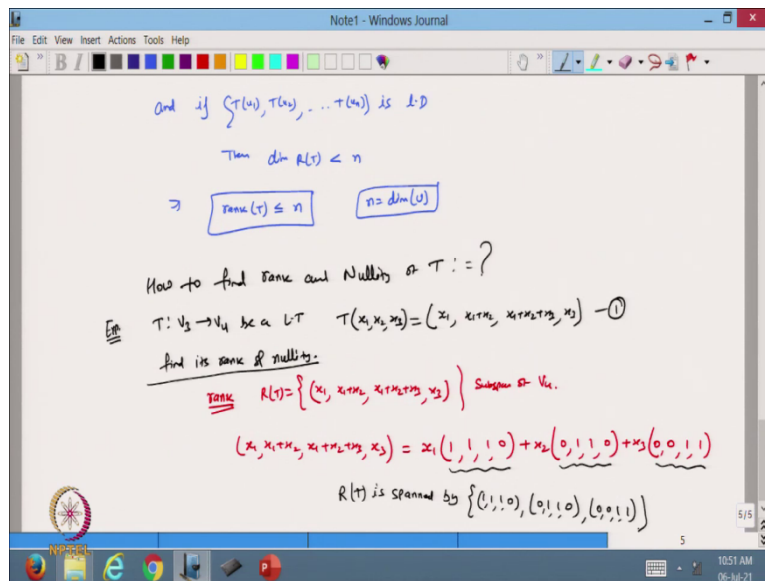 Note1 - Windows Journal
File Edit View Insert Actions Tools Help
B I
and if {T(u1), T(u2), ... T(un)} is l.D
Then dim R(T) < n
⇒ rank(T) ≤ n n = dim(U)
How to find rank and Nullity of T := ?
Exp. T: V3 → V4 be a L.T T(x1, x2, x3) = (x1, x1+x2, x1+x2+x3, x3) - ①
find its rank & nullity.
rank R(T) = {(x1, x1+x2, x1+x2+x3, x3)} Subspace of V4.
(x1, x1+x2, x1+x2+x3, x3) = x1(1, 1, 1, 0) + x2(0, 1, 1, 0) + x3(0, 0, 1, 1)
R(T) is spanned by {(1,1,1,0), (0,1,1,0), (0,0,1,1)}
5/5
5
NPTEL
10:51 AM
06-Jul-21